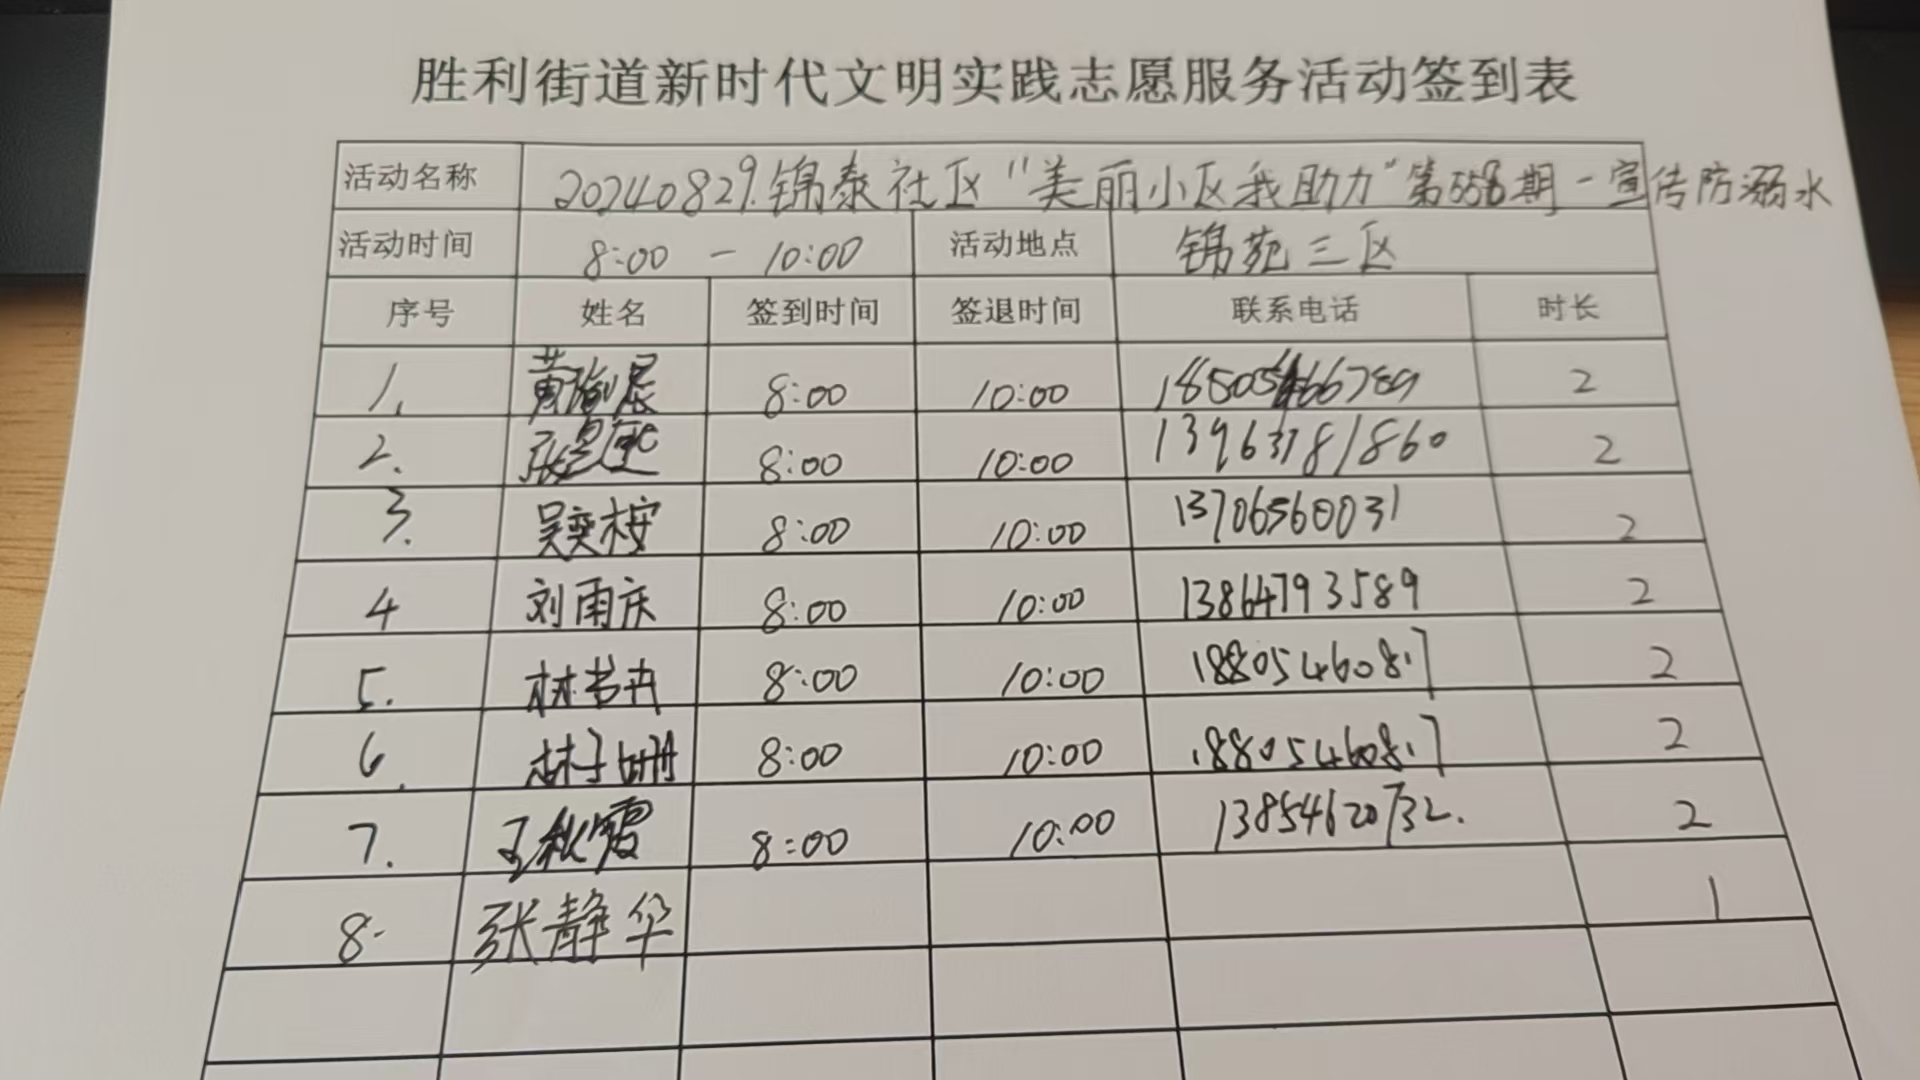 胜利街道新时代文明实践志愿服务活动签到表
活动名称 20240829.锦泰社区"美丽小区我助力"第558期-宣传防溺水
活动时间 8:00 - 10:00 活动地点 锦苑三区
序号 姓名 签到时间 签退时间 联系电话 时长
1. 8:00 10:00 2
2. 8:00 10:00 13963781860 2
3. 吴奕桉 8:00 10:00 13706560031 2
4 刘雨庆 8:00 10:00 13864793589 2
5. 林书冉 8:00 10:00 18805460817 2
6. 林子姗 8:00 10:00 18805460817 2
7. 王秋霞 8:00 10:00 13854620732. 2
8. 张静华 1